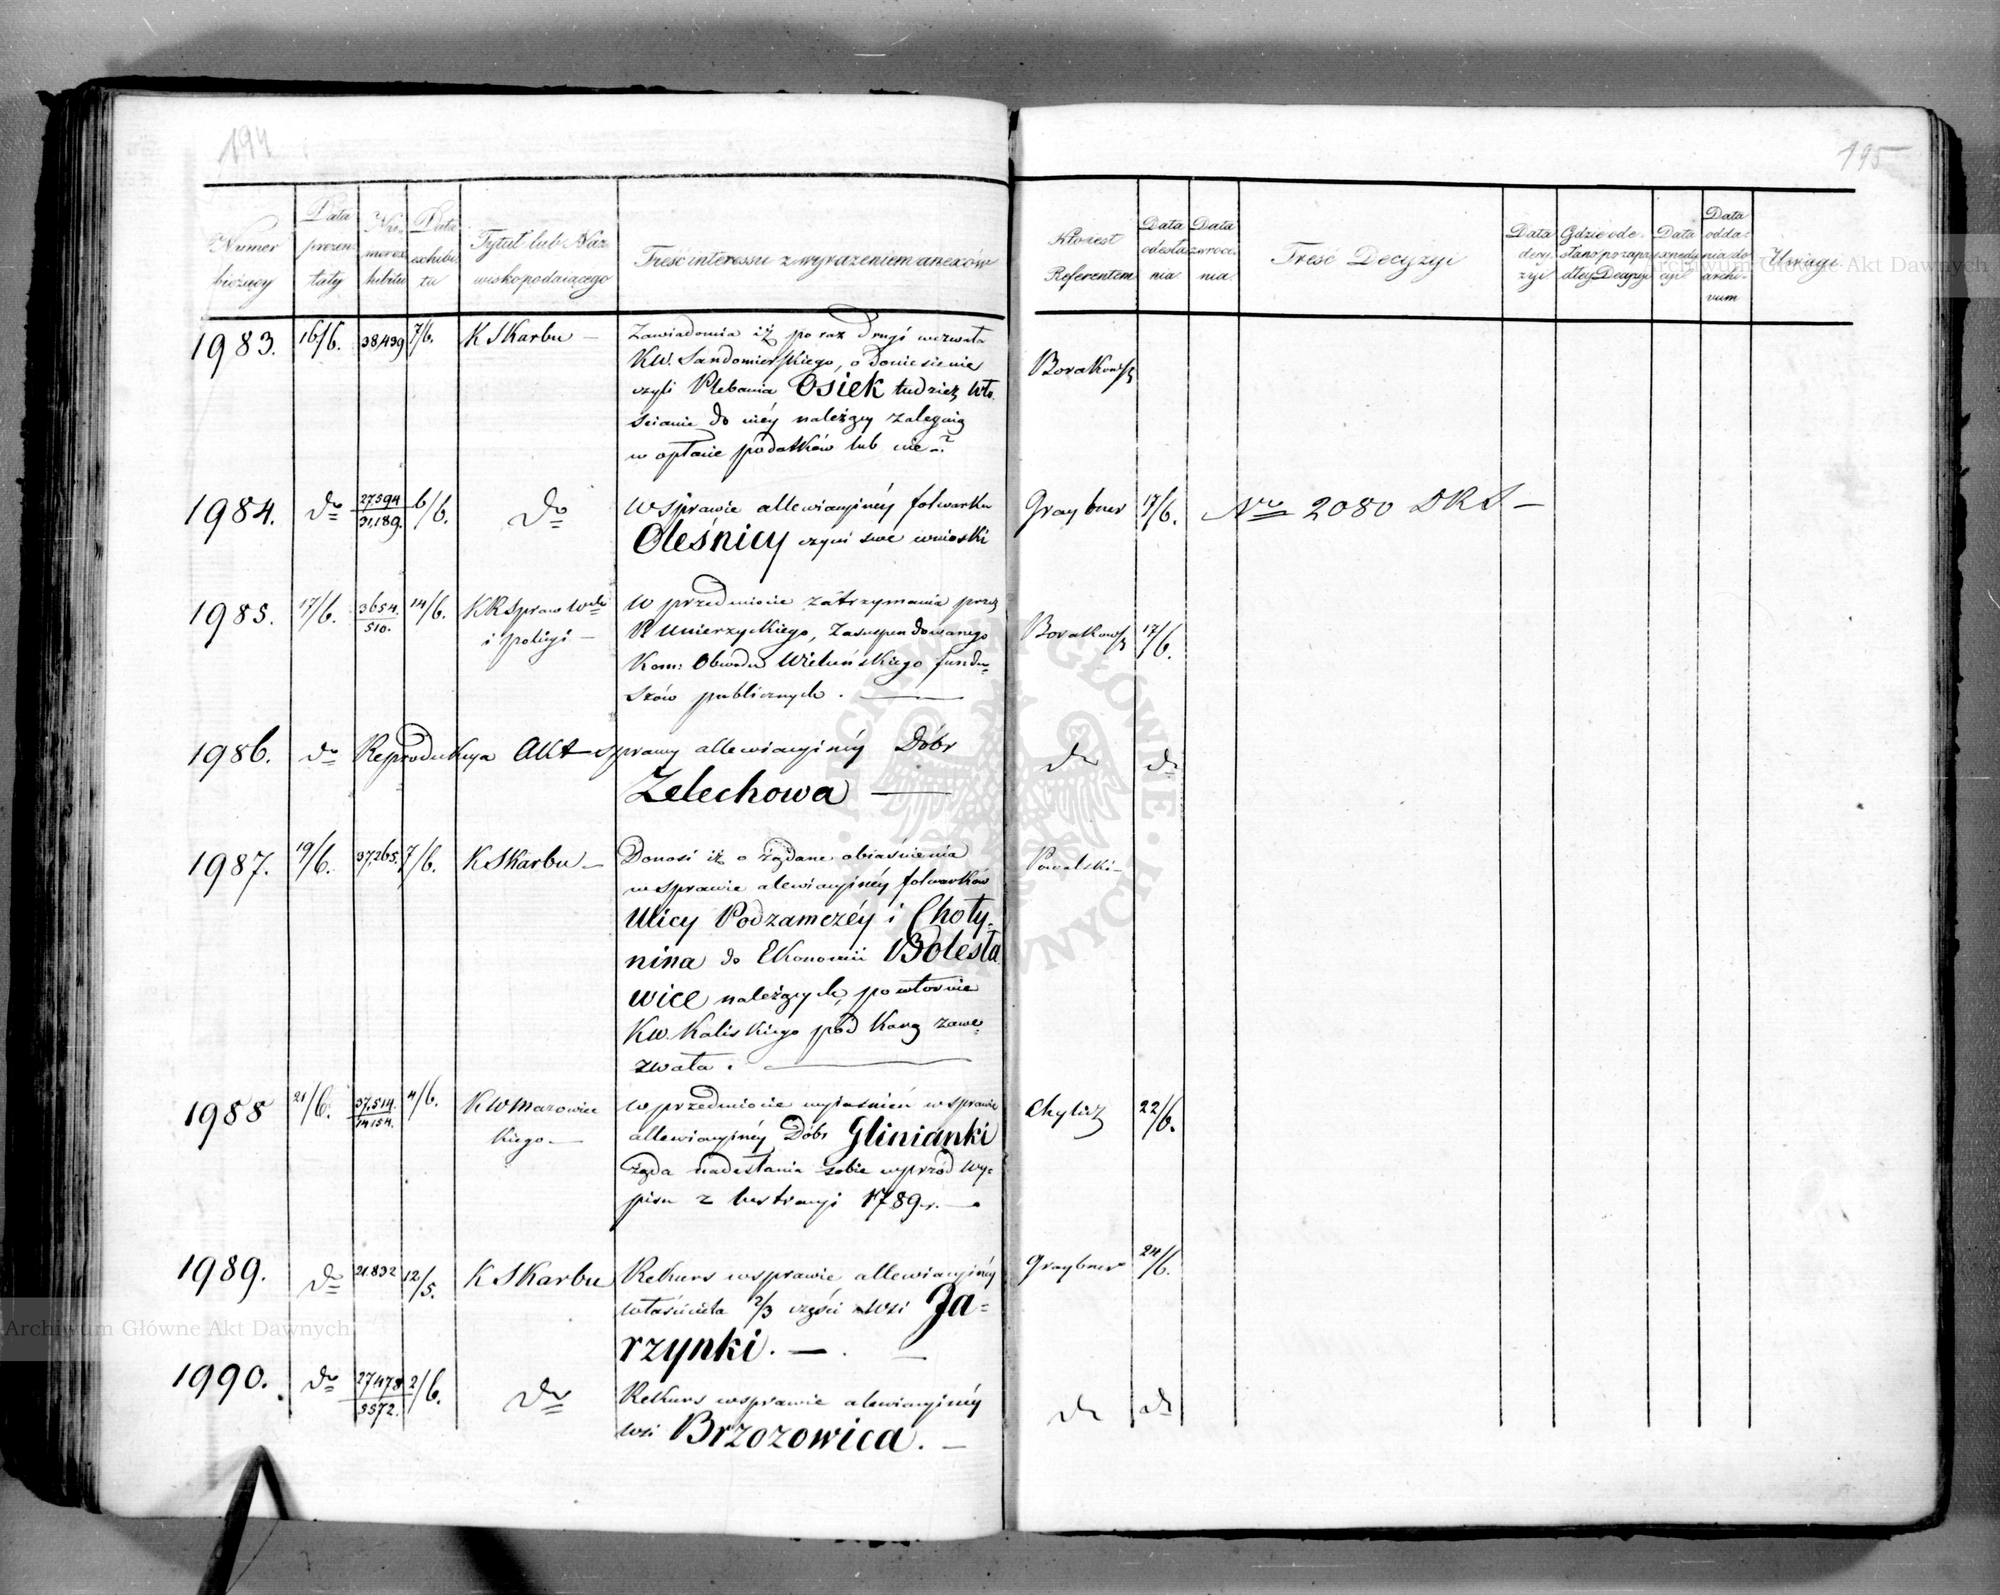 194
195
Numer bieżący
Data prezentaty
Numer exhibitu
Data exhibitu
Tytuł lub Nazwisko podającego
Treść interessu z wyrażeniem anexów
Kto iest Referentem
Data odesłania
Data zwrócenia
Treść Decyzyi
Data decyzyi
Gdzie odesłano
Data expedycyi
Data oddania do archivum
Uwagi
1983. 16/6. 38,439 7/6. K Skarbu — Zawiadomia iż po raz drugi wezwała
KW. Sandomierskiego, o doniesienie
czyli Plebania Osiek tudzież Wło-
ścianie do niéy należący zalegaią
w opłacie podatków lub nie?
Borakowski
1984. do 27594/31,189. 6/6. do W sprawie allewiacyinéy folwarku
Oleśnicy czyni swe wnioski
Graybner 17/6. Nro 2080 DKS —
1985. 17/6. 3654./510. 14/6. KR Spraw Wch
i Policyi —
W przedmiocie zatrzymania przez
P. Umierzyckiego, Zasuspendowanego
Kom: Obwodu Wieluńskiego fundu-
szów publicznych. —
Borakowski 17/6.
1986. do Reprodukcya Akt sprawy allewiacyinéy Dóbr
Zelechowa —
do do
1987. 19/6. 37,265. 7/6. K Skarbu — Donosi iż o żądane obiaśnienia
w sprawie alewiacyinéy folwarków
Ulicy Podzamczéy i Choty-
nina do Ekonomii Bolesła
wice należących, powtórnie
KW. Kaliskiego pod karą zawe-
zwała. —
Powalski —
1988 21/6. 37,514./14154. 4/6. KW Mazowiec
kiego —
W przedmiocie wyiaśnień w sprawie
allewiacyinéy Dóbr Glinianki
żąda nadesłania sobie wprzód wy-
pisu z lustracyi 1789 r. —
Chylicz 22/6.
1989. do 21832 12/5. K Skarbu Rekurs w sprawie allewiacyinéy
właściciela 2/3 części wsi Ja-
rzynki. —
Graybner 24/6.
1990. do 27478/5572. 2/6. do Rekurs w sprawie alewiacyinéy
wsi Brzozowica. —
do do
Archiwum Główne Akt Dawnych
Archiwum Główne Akt Dawnych
ARCHIWUM GŁÓWNE AKT DAWNYCH